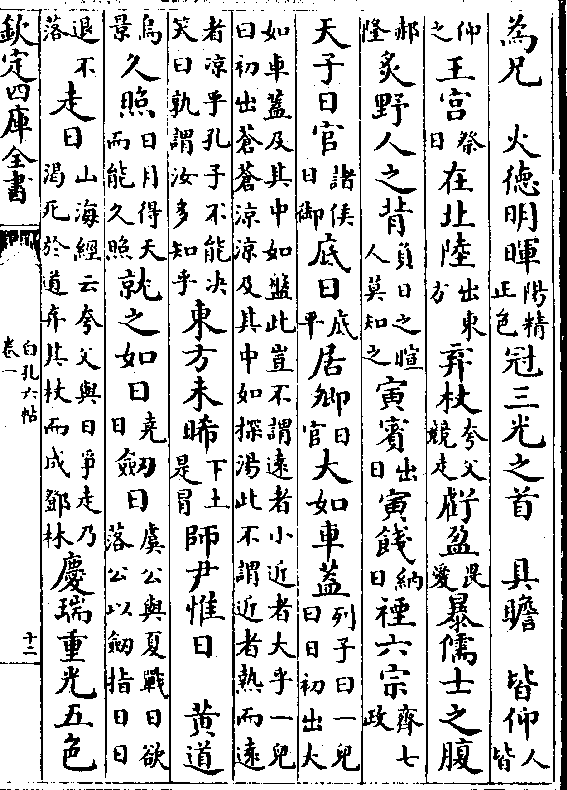 為兄　火德明暉陽精正色冠三光之首　具瞻　皆仰人皆
仰之王宮祭日在北陸出東方弃杖夸父競走虧盈畏愛暴儒士之腹
郝隆炙野人之背負日之暄人莫知之寅賓出日寅餞納日禋六宗齊七政
天子日官諸侯日御底日底平居卿日官大如車蓋列子曰一兒曰日初出大
如車蓋及其中如盤此豈不謂遠者小近者大乎一兒曰初出蒼蒼涼涼及其中如探湯此不謂近者熱而遠
者凉乎孔子不能决笑曰孰謂汝多知乎東方未晞下土是冐師尹惟日　黃道
烏景久照日月得天而能久照就之如日堯日劒日虞公與夏戰日欲落公以劒指日日
退不落走日山海經云夸父與日爭走乃渴死於道弃其杖而成鄧林慶瑞重光五色
欽定四庫全書
白孔六帖
卷一
十二